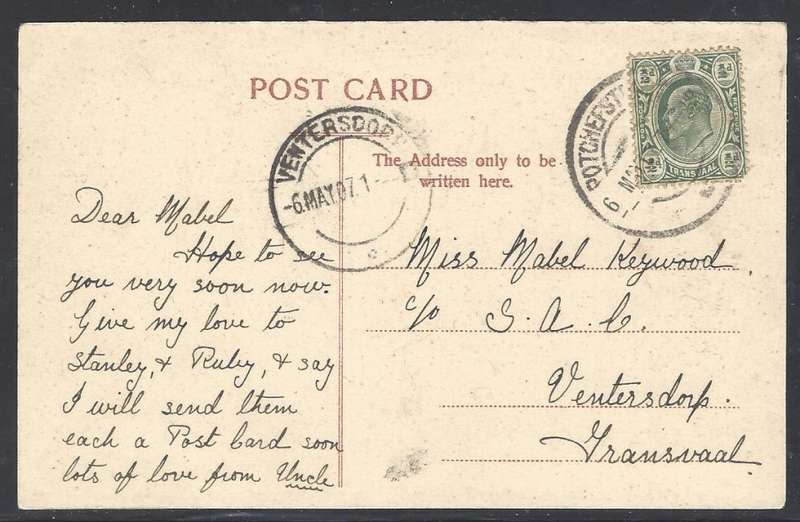 POST CARD
VENTERSDORP
-6 MAY.07.1
The Address only to be
written here.
TRANSVAAL
Dear Mabel
Hope to see
you very soon now.
Give my love to
Stanley, & Ruby, & say
I will send them
each a Post Card soon
lots of love from Uncle
Miss Mabel Keywood
c/o S. A. C.
Ventersdorp.
Transvaal